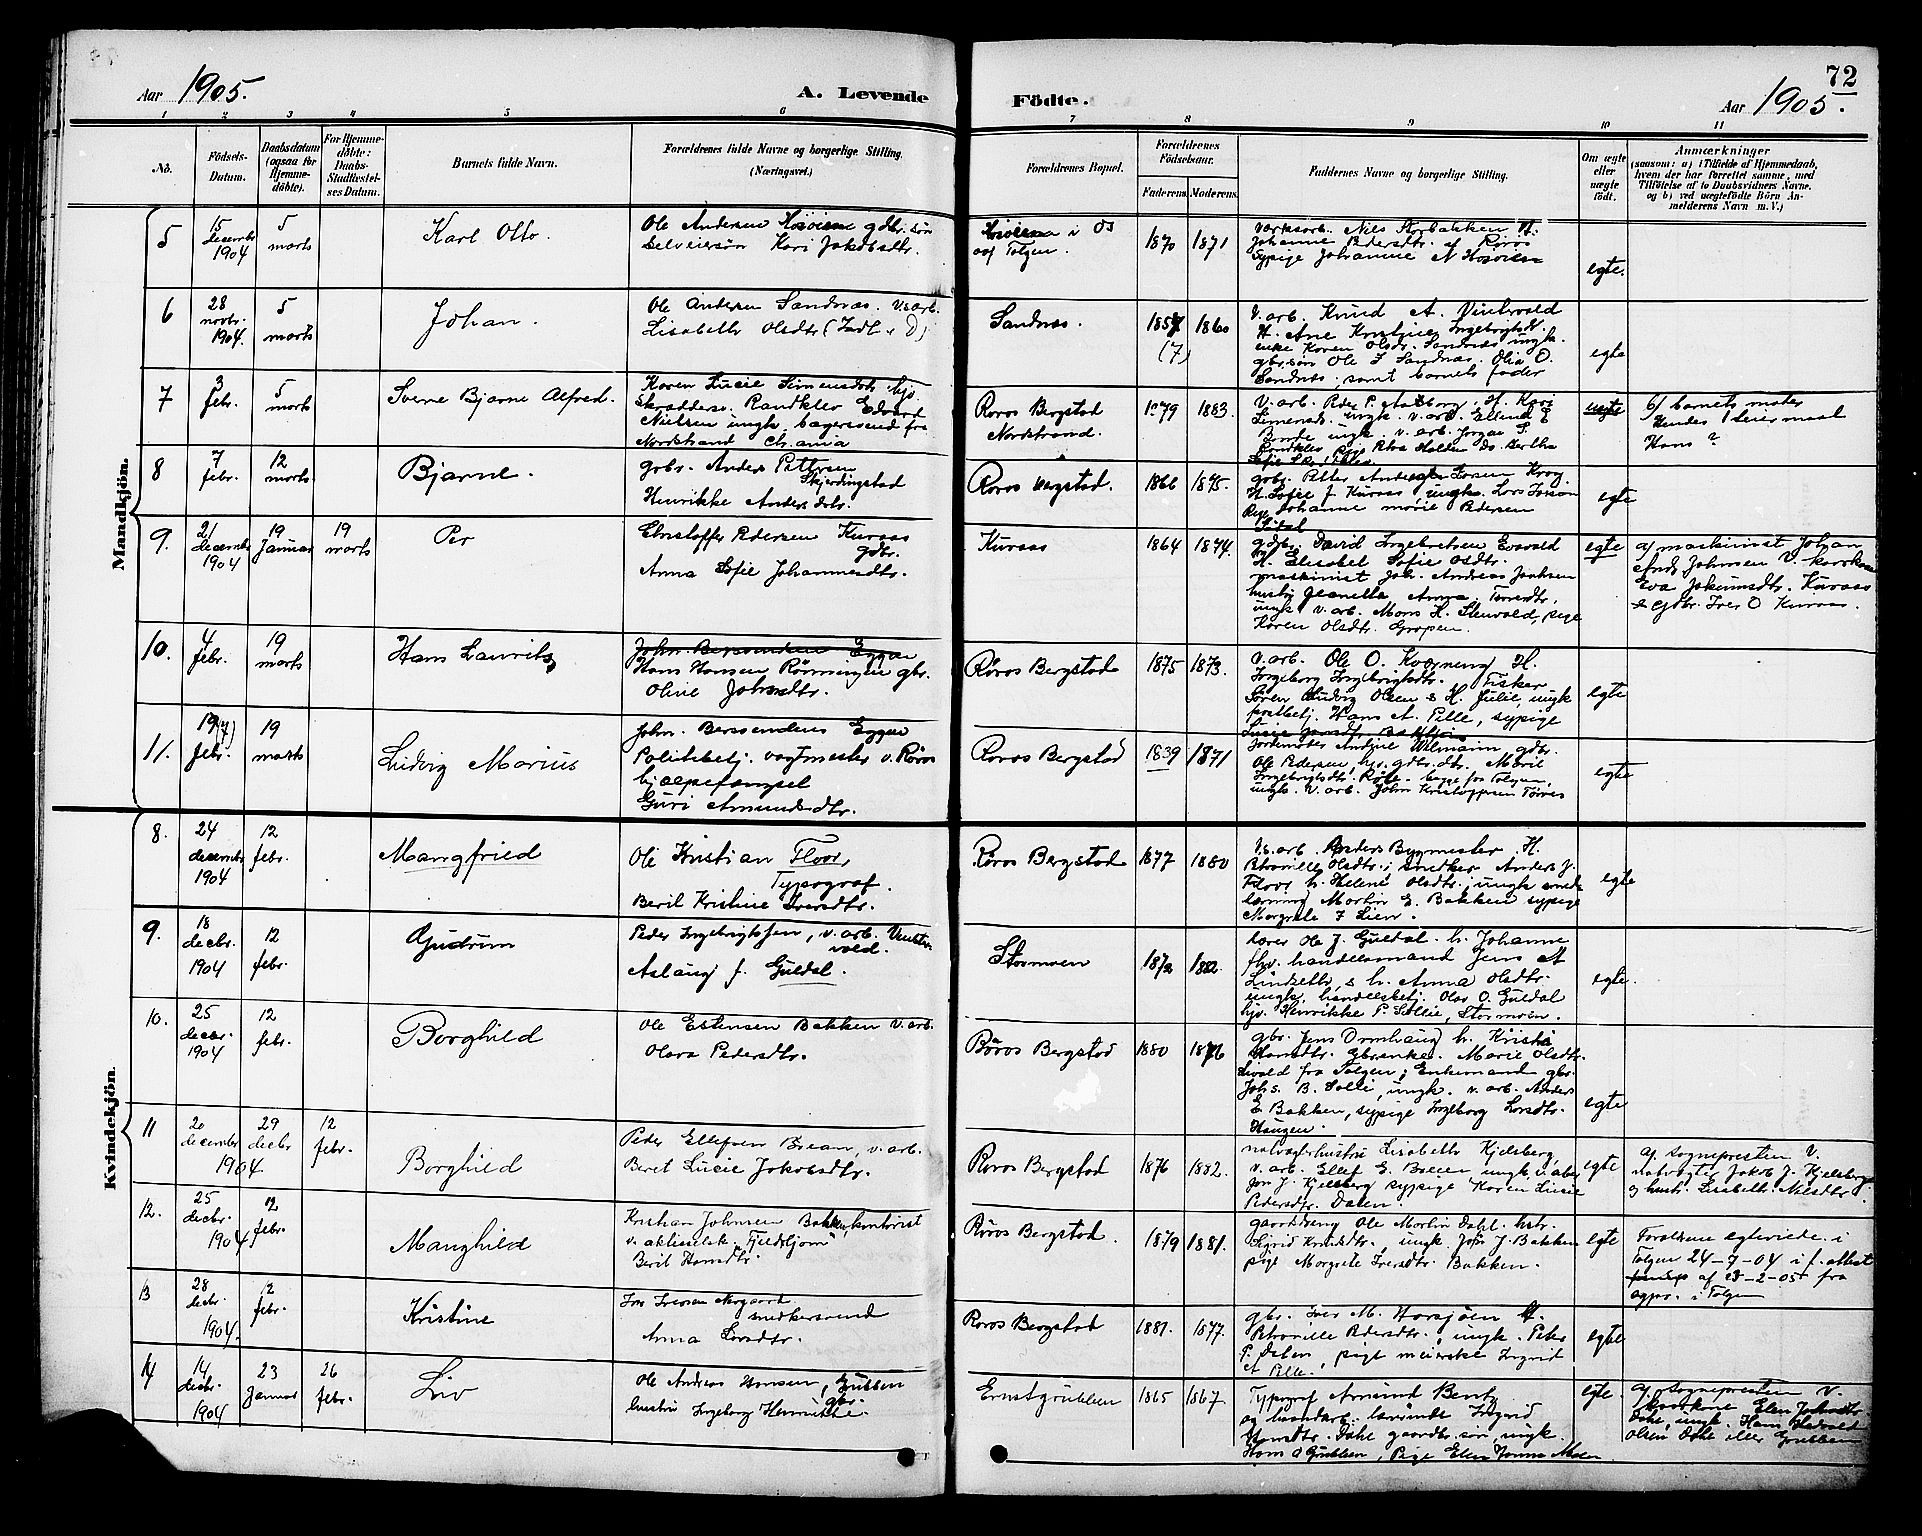 Aar 1905.
A. Levende
Födte.
72
Aar 1905.
1 2 3 4 5 6 7 8 9 10 11
No.
Födsels-Datum.
Daabsdatum (ogsaa for Hjemmedöbte).
For Hjemmedöbte: Daabs-Stadfæstelses Datum.
Barnets fulde Navn.
Forældrenes fulde Navne og borgerlige Stilling. (Næringsvei.)
Forældrenes Bopæl.
Forældrenes Födselsaar.
Faderens. Moderens.
Faddernes Navne og borgerlige Stilling.
Om ægte eller uægte födt.
Anmærkninger
(saasom: a) i Tilfælde af Hjemmedaab, hvem der har forrettet samme, med Tilföielse af to Daabsvidners Navne, og b) ved uægtefödte Börn Anmelderens Navn m. V.)
Mandkjön.
5 15 decembr 1904 5 marts Karl Otto.
Ole Andersen gdbr. sön
selveiersön Kari Jakobsdtr.
i Os
Tolgen.
1870 1871
Værksarb. Nils Storbakken H.
Johanne Pedersdtr. af Röros
Sypige Johanne
egte.
6 28 novbr. 1904. 5 marts Johan.
Ole Andersen Sandnæs. V.arb.
Lisabeth Olsdtr
Sandnæs.
1857 (7) 1860
V. arb. Knud A. Vintervold
H. Ane Ingebrigtsd.
enke Karen Olsdr. Sandnæs ungk.
gbr.sön Ole J Sandnæs. Olia O.
Sandnæs, samt barnets fader
egte
7 3 febr. 5 marts Sverre Bjarne Alfred.
Karen Lucie Simensdatr
Skrædderske. Randklev Edvard
Nielsen ungk. bagersvend fra
Nordstrand Ch.ania
Röros Bergstad
Nordstrand.
1879 1883.
uegte
b) barnets moder
Hendes 1 leiermaal
Hans ?
8 7 febr. 12 marts Bjarne.
gbr. Anders Pettersen
Skjerdingstad
Henrikke Andersdtr.
Röros Bergstad.
1866 1875.
gbr. Petter Andersen
H. Sofie J Kuraas, ungk. Lars
Pige Johanne Marie Pedersen
egte
9. 21 decembr 1904 19 Januar 19 marts Per
Christoffer Pedersen Kuraas
gdbr.
Anna Sofie Johannesdtr.
Kuraas
1864 1874.
gdbr. David Ingebretsen Evavold
H. Elisabet Sofie Olsdtr.
maskinist Joh. Andreas Johnsen
hustru Jeanetta Anna
ungk. v. arb. Mons H. Stenvold, pige
Karen Olsdtr. Gropen.
egte
a) maskinist Johan
Andr Johnsen V.
Eva Jokumsdtr. Kuraas
& Gdbr. Iver O Kuraas.
10. 4 febr. 19 marts Hans Laurits,
John Berssendsen Eggen
Hans Hansen Rönningen gbr.
Oline Johnsdtr.
Röros Bergstad
1875 1873.
V. arb. Ole O. Kværneng H.
Ingeborg Ingebrigtsdtr. Fisker
Sören Ludvig Olsen & H. Julie, ungk
postbetj. Hans A. Pille, sypige
egte
11. 19 (4) febr. 19 marts Ludvig Marius
John. Berssendsen Eggen
Politibetj. vagtmester v. Röros
hjælpefængsel
Guri Amundsdtr.
Röros Bergstad
1839 1871
Jordemoder Andrine Wilmann, gdbr.
Ole Pedersen, gdbr.dtr. Marie
Ingebrigtsdtr. begge fra Tolgen
ungk. v. arb. John Kristoffersen
egte
Kvindekjön.
8. 24 decembr 1904 12 febr. Mangfried
Ole Kristian Floor,
Typograf.
Beril Kristine Iversdtr.
Röros Bergstad
1877 1880
V.arb. Anders Bygmester H.
Petronille Olsdtr., snedker Anders J.
Floor h. Helene Olsdtr., ungk
Martin E. Bakken sypige
Margrete J Lien.
egte
9. 18 decbr. 1904 12 febr. Gudrun
Peder Ingebrigtsen, v. arb. Vintervold.
Aslaug f. Guldal.
Stormoen
1872 1882.
lærer Ole J. Guldal. h. Johanne
fhv. handelsmand Jens A
& h. Anna Olsdtr.
ungk. handelsbetj. Olav O. Guldal
Henrikke P. Sollie, Stormoen.
egte.
10. 25 decbr. 1904 12 febr. Borghild
Ole Estensen Bakken v. arb.
Olava Pedersdtr.
Röros Bergstad
1880 1876
gbr. Jens Ormhaug h. Kristi
Hansdtr. Gbr.enke. Marie Olsdtr.
fra Tolgen; Enkemand gbr.
Johs. B. Sollie, ungk. v. arb. Anders
E. Bakken, sypige Ingeborg Larsdtr.
Haugen.
egte
11 20 decembr 1904. 29 decbr 12 febr. Borghild
Peder Ellefsen Brean, v. arb.
Beret Lucie Jakobsdtr.
Röros Bergstad
1876 1882.
natvægterhustru Lisabeth Kjelsberg,
v. arb. Ellef E. ungk.
Jon J. Kjelsberg sypige Karen Lucie
Pedersdtr. Dalen.
egte
a) sognepresten V.
natvægter Jakob J. Kjelsberg
og hustr. Lisabeth Nilsdtr.
12. 25 decbr. 1904 12 febr. Manghild
Kristian Johnsen Bakken, kontorist
v. aktieselsk. "Fjeldsjom"
Beril Hansdtr.
Röros Bergstad.
1879 1881.
gaardsdreng Ole Martin Dahl. hstr.
Sigrid Knudsdtr. ungk. Jon J. Bakken
pige Margrete Iversdtr. Bakken.
egte
Foræltrene egteviede i
Tolgen 24-7-04 i f. attest
af 13-2-05 fra
i Tolgen
13 28 decbr. 1904. 12 febr. Kristine
Iver Iversen
snedkersvend
Anna Larsdtr.
Röros Bergstad
1881. 1877.
gbr. Iver M. Korsjöen H.
Petronille Pedersdtr., ungk. Peter
P. Dalen, pige meierske Ingrid
A Pille.
egte
14 14 decbr. 1904 23 januar 26 febr. Liv
Ole Andreas Hansen, Gubben
gbr.
hustru Ingeborg Henrikke.
Ernstgrubben
1865 1867
Typograf Amund Bentz
Hansdtr. Dahl gaardbr. sön, ungk.
Hans O Grubben, Pige Elen Moen
egte.
a) Sognepresten V.
Elen Jakobdtr
Dahl, ungk. Hans
Olsen Dahl eller Grubben